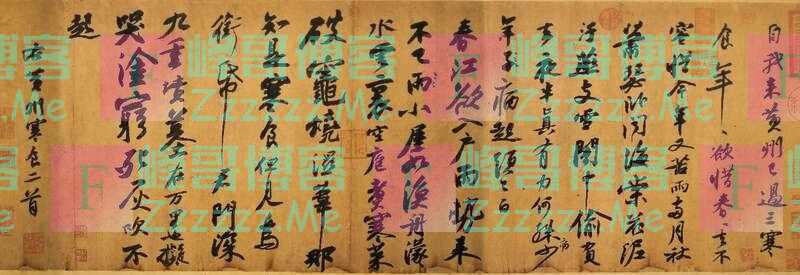 自我來黃州已過三寒
食年〻欲惜春〻去不
容惜今年又苦雨兩月秋
蕭瑟臥聞海棠花泥
汙燕支雪闇中偷負
去夜半真有力何殊少
年子病起頭已白
春江欲入戶雨勢來
不已雨小屋如漁舟濛〻
水雲裏空庖煮寒菜
破竈燒溼葦那
知是寒食但見烏
銜帋君門深
九重墳墓在萬里也擬
哭塗窮死灰吹不
起
右黃州寒食二首
峰哥博客
Zzzzzz.Me
F